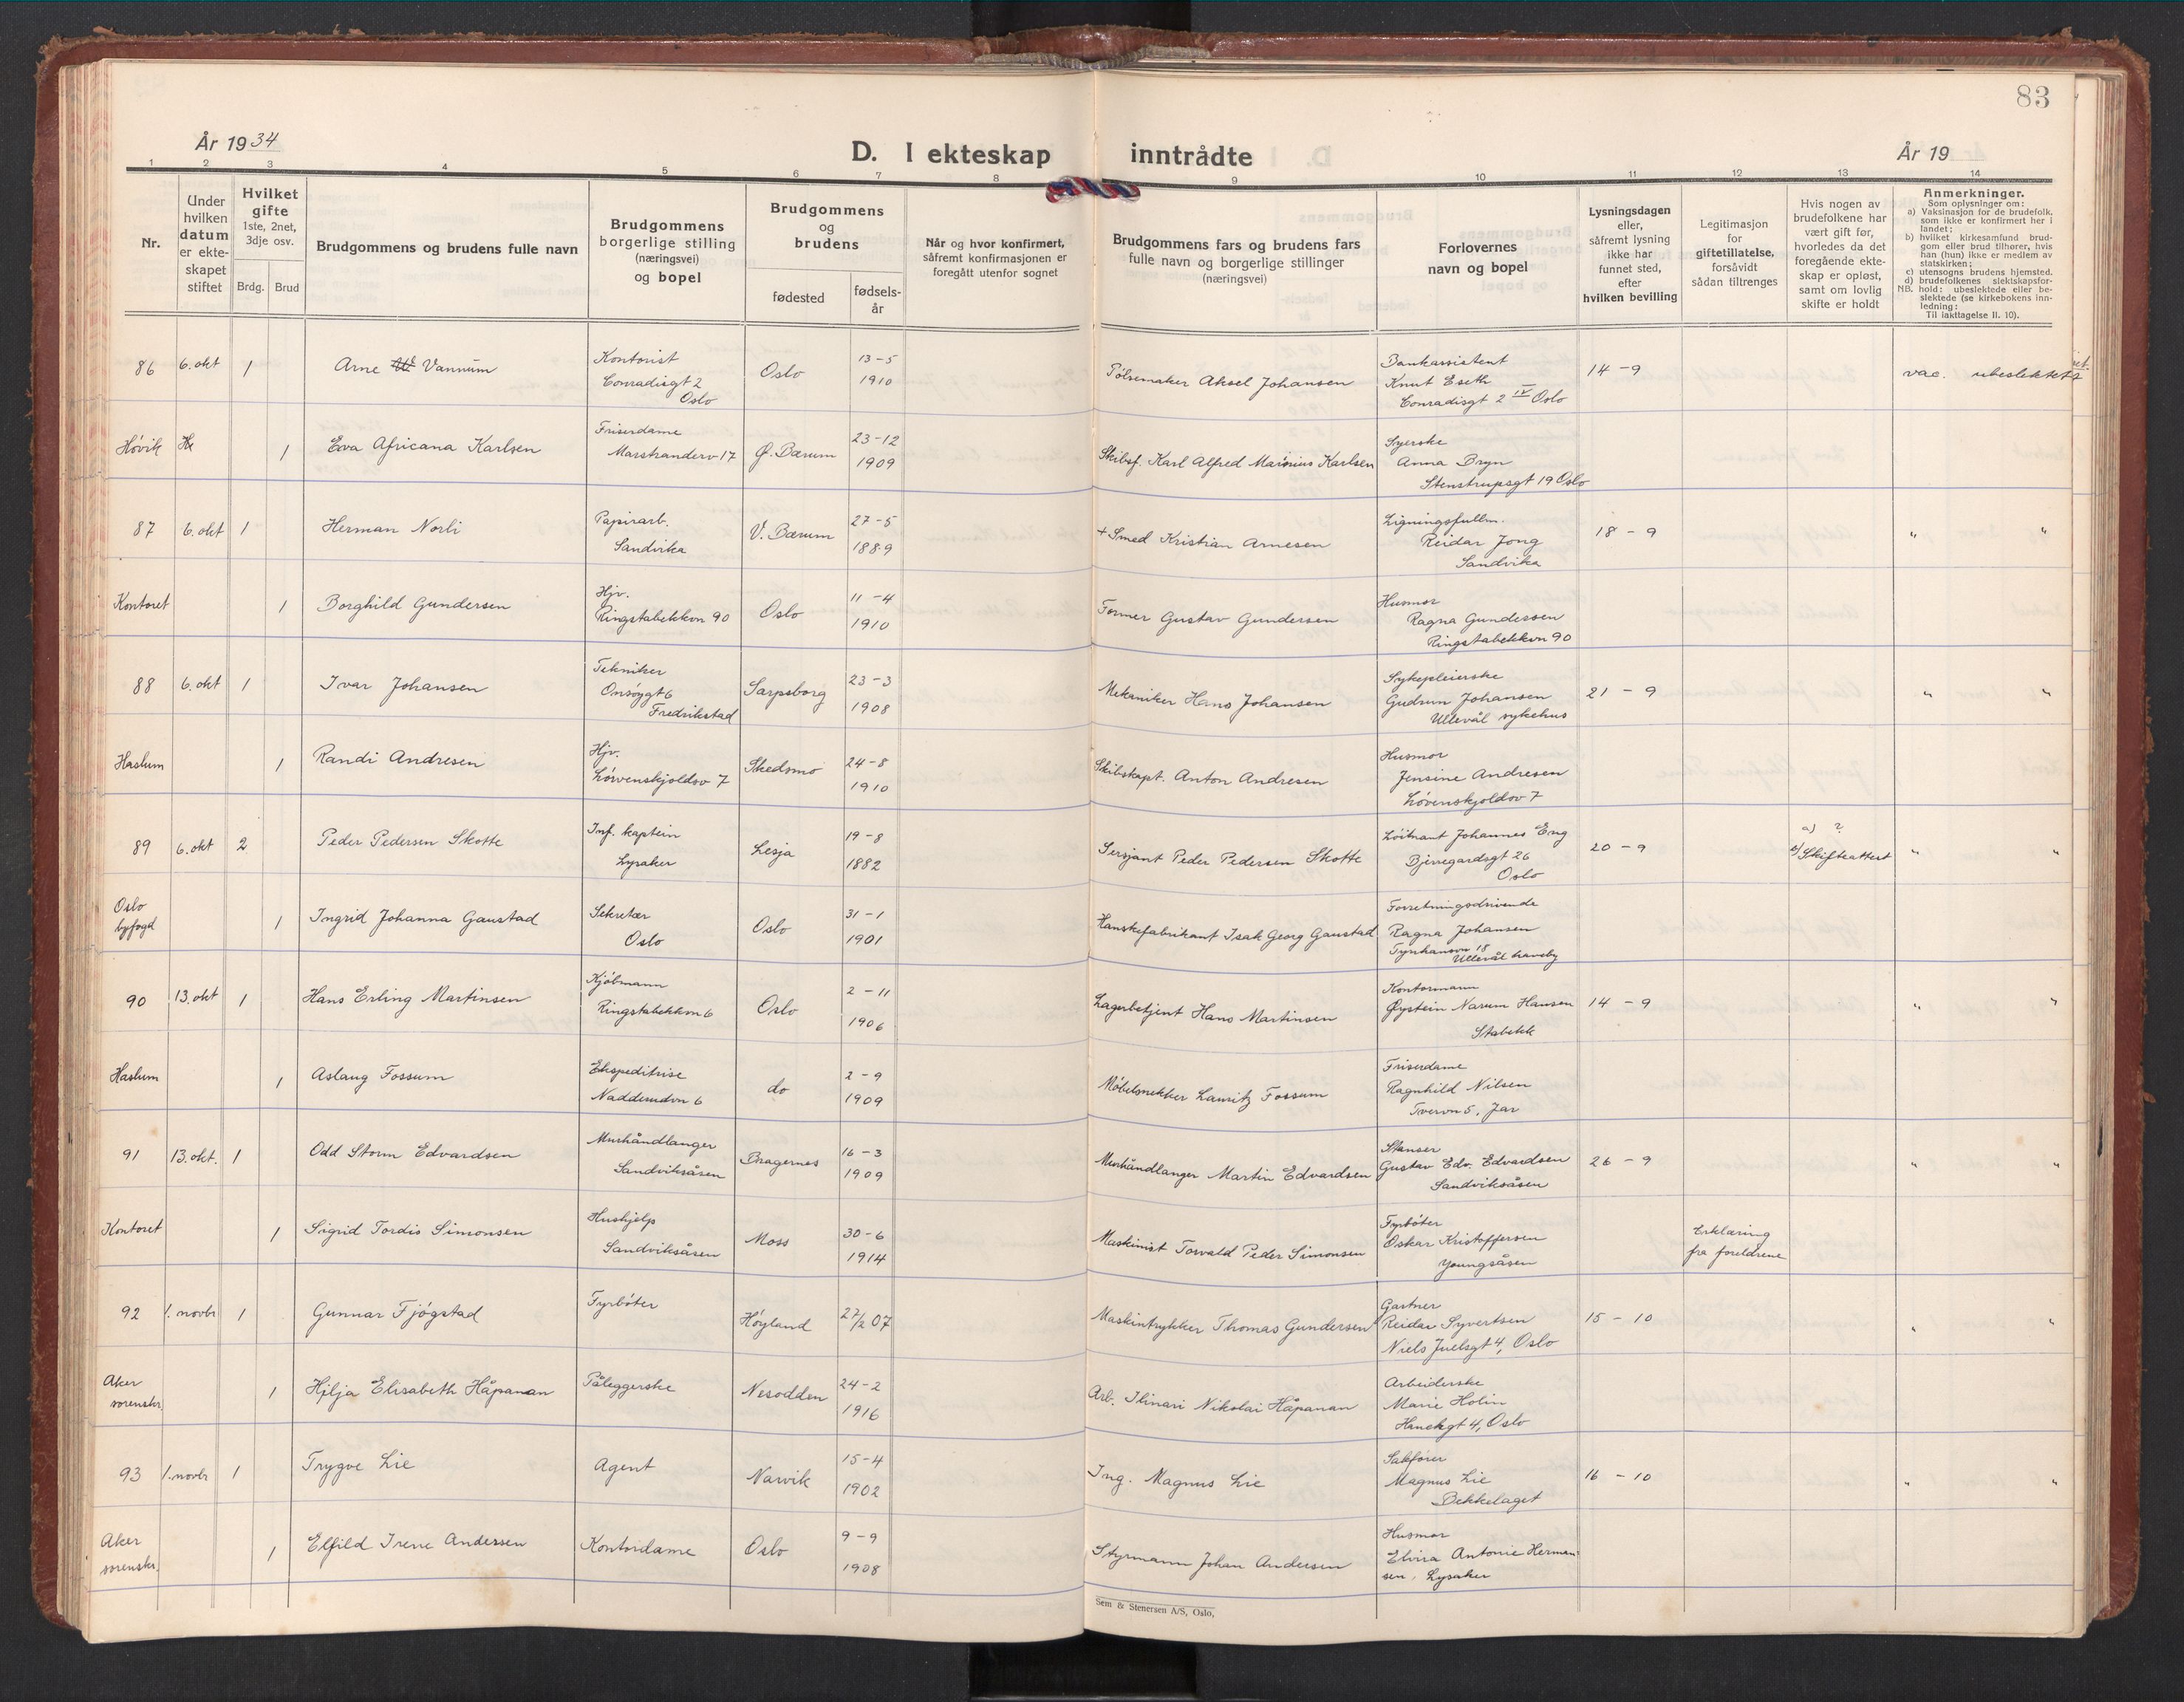 83
År 1934
D. I ekteskap
inntrådte
År 19
1 2 3 4 5 6 7 8 9 10 11 12 13 14
Nr.
Under
hvilken
datum
er ekte-
skapet
stiftet
Hvilket
gifte
1ste, 2net,
3dje osv.
Brdg. Brud
Brudgommens og brudens fulle navn
Brudgommens
borgerlige stilling
(næringsvei)
og bopel
Brudgommens
og
brudens
fødested
fødsels-
år
Når og hvor konfirmert,
såfremt konfirmasjonen er
foregått utenfor sognet
Brudgommens fars og brudens fars
fulle navn og borgerlige stillinger
(næringsvei)
Forlovernes
navn og bopel
Lysningsdagen
eller,
såfremt lysning
ikke har
funnet sted,
efter
hvilken bevilling
Legitimasjon
for
giftetillatelse,
forsåvidt
sådan tiltrenges
Hvis nogen av
brudefolkene har
vært gift før,
hvorledes da det
foregående ekte-
skap er opløst,
samt om lovlig
skifte er holdt
Anmerkninger.
Som oplysninger om:
a) Vaksinasjon for de brudefolk,
som ikke er konfirmert her i
landet;
b) hvilket kirkesamfund brud-
gom eller brud tilhører, hvis
han (hun) ikke er medlem av
statskirken;
c) utensogns brudens hjemsted.
d) brudefolkenes slektskapsfor-
NB. hold: ubeslektede eller be-
slektede (se kirkebokens inn-
ledning:
Til iakttagelse II. 10).
86 6. okt 1 Arne Vannum
Kontorist
Conradisgt 2
Oslo
Oslo
13-5
1910
Pølsemaker Aksel Johansen
Bankassistent
Knut Eseth
Conradisgt 2 IV Oslo
14-9
vac. ubeslektet
Høvik 1 Eva Africana Karlsen
Friserdame
Marstranderv 17
Ø. Bærum
23-12
1909
Skibsf. Karl Alfred Marinius Karlsen
Syerske
Anna Bryn
Stenstrupsgt 19 Oslo
87 6. okt 1 Herman Norli
Papirarb.
Sandvika
V. Bærum
27-5
1889
+ Smed Kristian Arnesen
Ligningsfullm.
Reidar Jong
Sandvika
18-9
" "
Kontoret 1 Borghild Gundersen
Hjv.
Ringstabekkvn 90
Oslo
11-4
1910
Former Gustav Gundersen
Husmor
Ragna Gundersen
Ringstabekkvn 90
88 6. okt 1 Ivar Johansen
Tekniker
Onsøygt 6
Fredrikstad
Sarpsborg
23-3
1908
Mekaniker Hans Johansen
Sykepleierske
Gudrun Johansen
Ullevål sykehus
21-9
" "
Haslum 1 Randi Andresen
Hjv.
Løvenskjoldsv 7
Skedsmo
24-8
1910
Skibskapt. Anton Andresen
Husmor
Jensine Andresen
Løvenskjoldsv 7
89 6. okt 2 Peder Pedersen Skotte
Inf. kaptein
Lysaker
Lesja
19-8
1882
Sersjant Peder Pedersen Skotte
Løitnant Johannes Eng
Bjerregardsgt 26
Oslo
20-9
a) ?
b) Skifteattest
" "
Oslo
byfogd
1 Ingrid Johanna Gaustad
Sekretær
Oslo
Oslo
31-1
1901
Hanskefabrikant Isak Georg Gaustad
Forretningsdrivende
Ragna Johansen
Ullevål haveby
90 13. okt 1 Hans Erling Martinsen
Kjøbmann
Ringstabekkvn 6
Oslo
2-11
1906
Lagerbetjent Hans Martinsen
Kontormann
Øystein Narum Hansen
Stabekk
14-9
" "
Haslum 1 Aslaug Fossum
Ekspeditrise
Nadderudvn 6
do
2-9
1909
Møbelsnekker Lauritz Fossum
Friserdame
Ragnhild Nilsen
Tvervn 5, Jar
91 13. okt. 1 Odd Storm Edvardsen
Murhåndlanger
Sandviksåsen
Bragernes
16-3
1909
Murhåndlanger Martin Edvardsen
Stanser
Gustav Edv. Edvardsen
Sandviksåsen
26-9
" "
Kontoret 1 Sigrid Tordis Simonsen
Hushjelp
Sandviksåsen
Moss
30-6
1914
Maskinist Torvald Peder Simonsen
Fyrbøter
Oskar Kristoffersen
Youngsåsen
Erklæring
fra foreldrene
92 1. novbr 1 Gunnar Fjógstad
Fyrbøter
Høyland
27/2 07
Maskintrykker Thomas Gundersen
Gartner
Reidar Syvertsen
Niels Juelsgt 4, Oslo
15-10
" "
Aker
sorenskr.
1 Hilja Elisabeth Håpanan
Påleggerske
Nesodden
24-2
1916
Arb. Ilinari Nikolai Håpanan
Arbeiderske
Marie Holin
Oslo
93 1. novbr 1 Trygve Lie
Agent
Narvik
15-4
1902
Ing. Magnus Lie
Sakfører
Magnus Lie
Bekkelaget
16-10
" "
Aker
sorenskr.
1 Elfild Irene Andersen
Kontordame
Oslo
9-9
1908
Styrmann Johan Andersen
Husmor
Elvira Antonie Herman
sen, Lysaker
Sem & Stenersen A/S, Oslo.